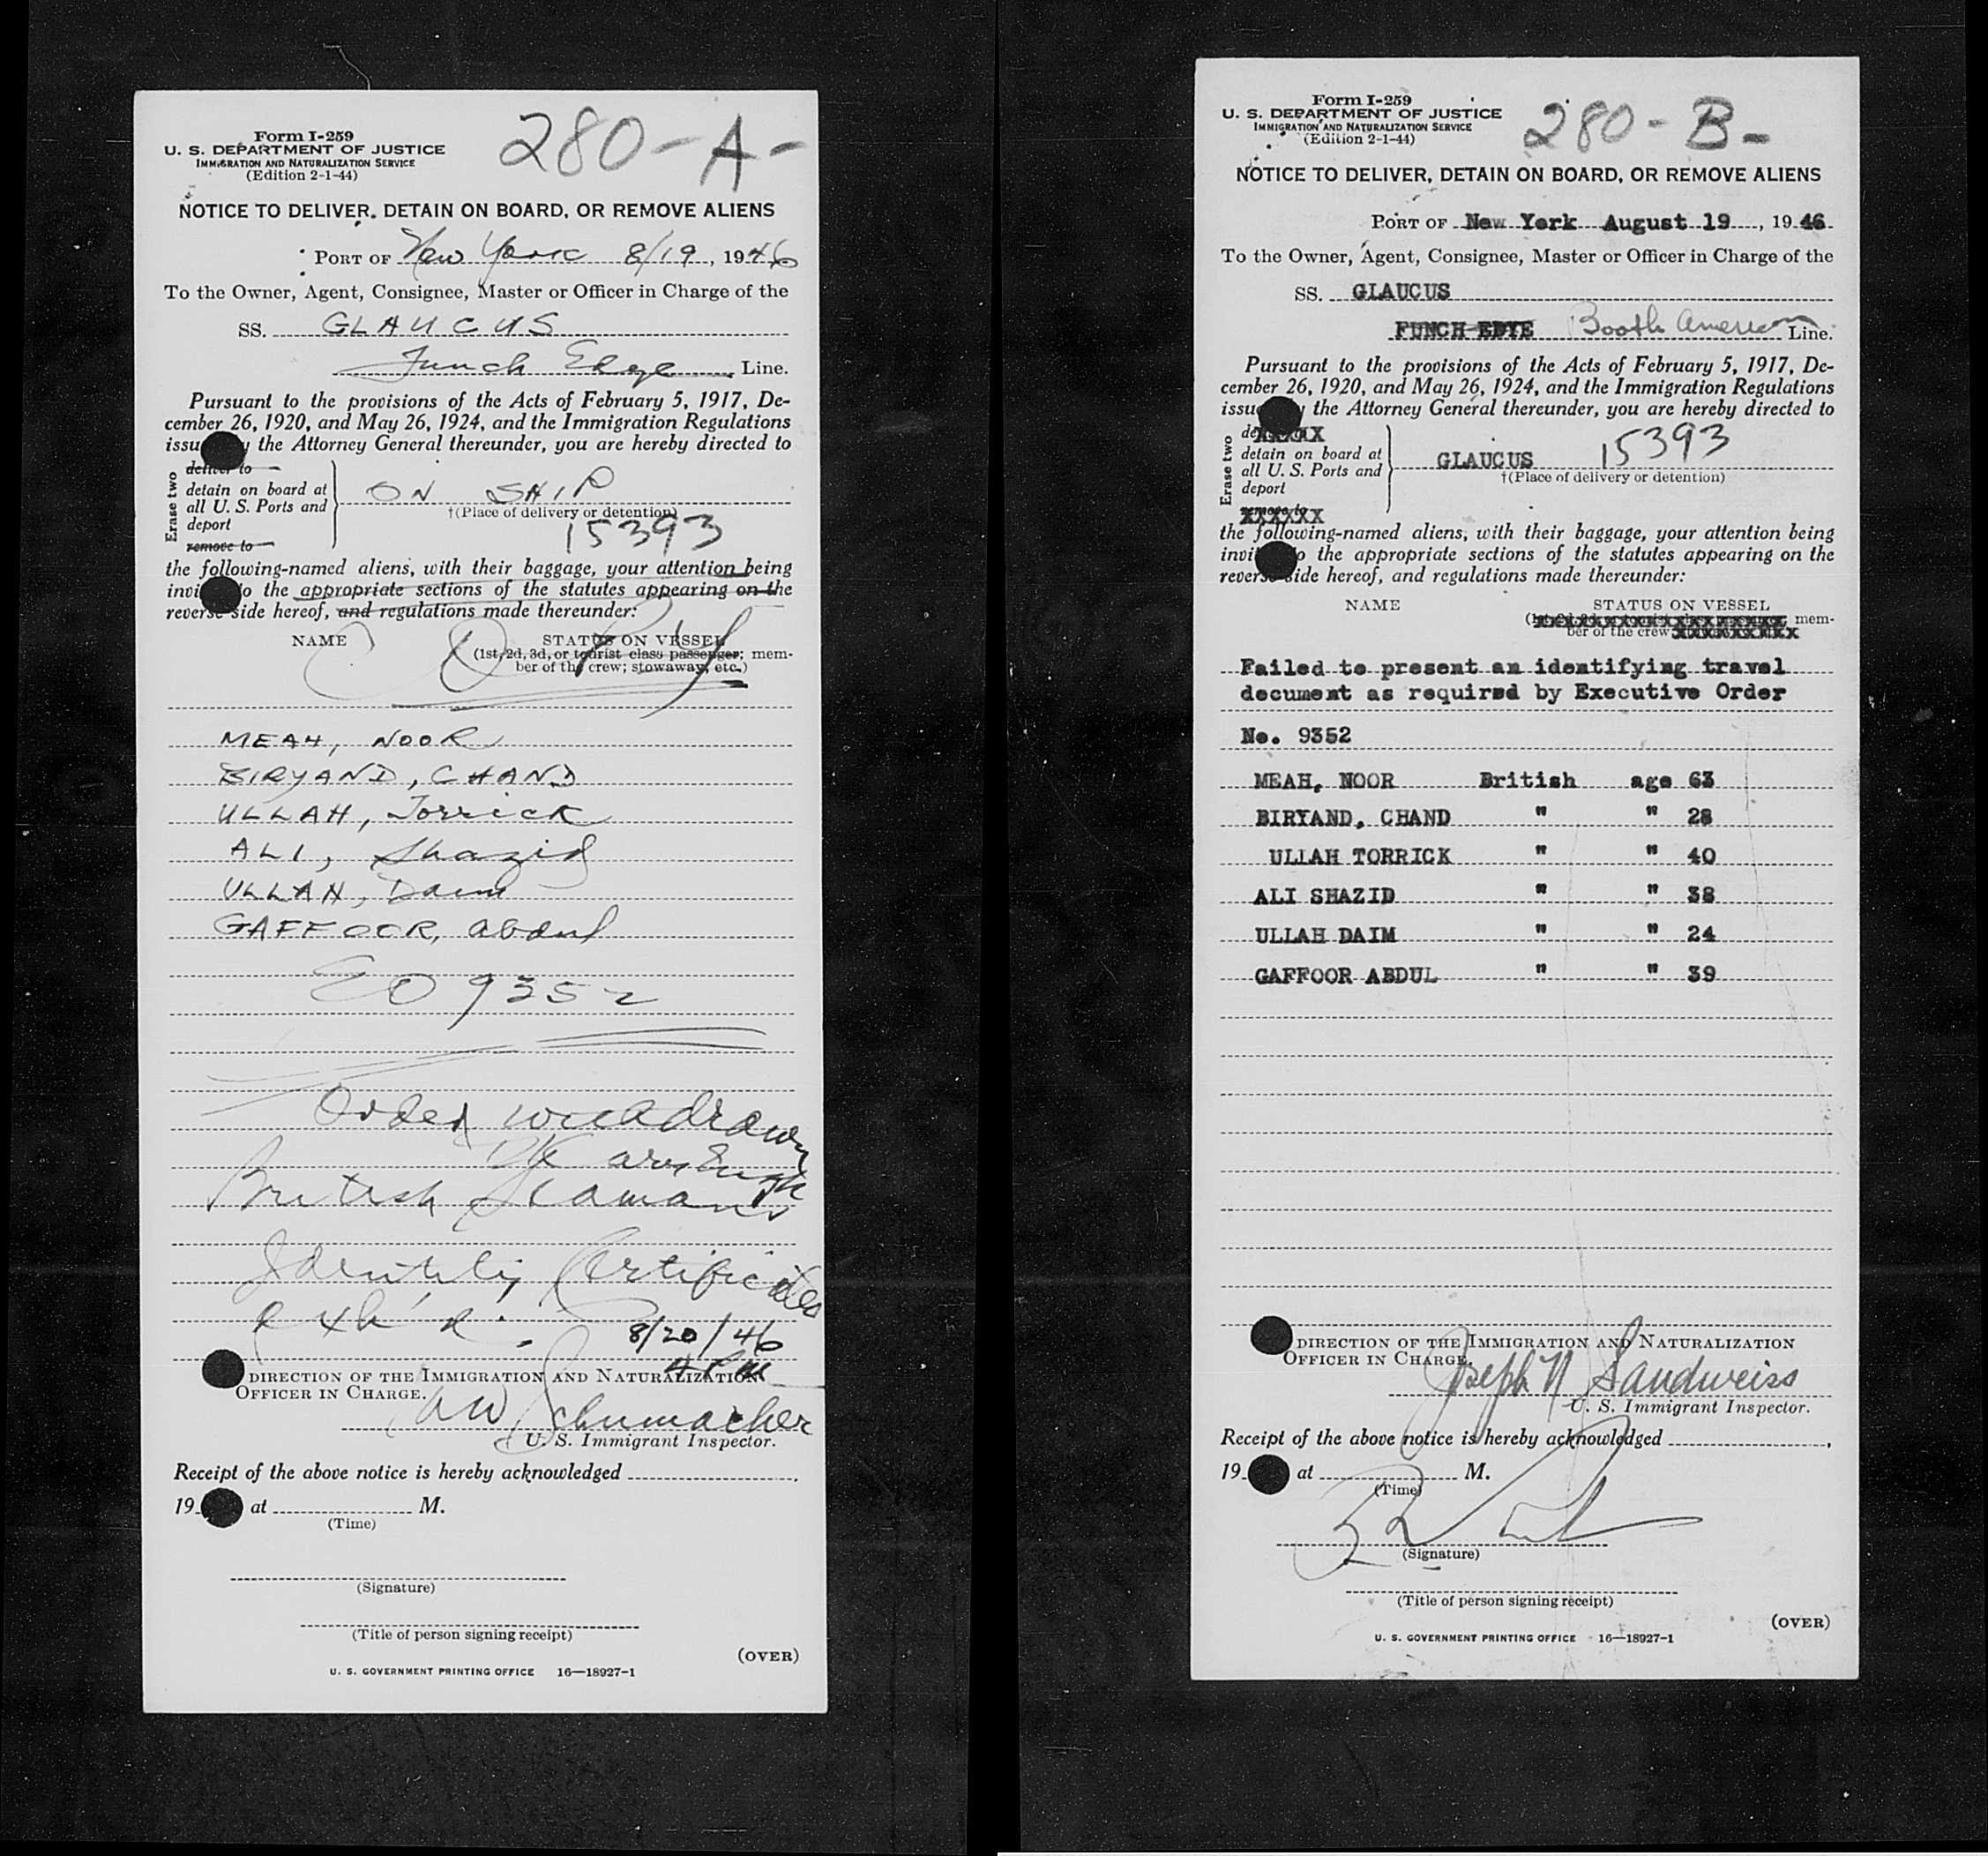 280-A-
Form I-259
U. S. DEPARTMENT OF JUSTICE
IMMIGRATION AND NATURALIZATION SERVICE
(Edition 2-1-44)
NOTICE TO DELIVER, DETAIN ON BOARD, OR REMOVE ALIENS
PORT OF New York 8/19, 1946
To the Owner, Agent, Consignee, Master or Officer in Charge of the
SS. GLAUCUS
Funch Edye Line.
Pursuant to the provisions of the Acts of February 5, 1917, De-
cember 26, 1920, and May 26, 1924, and the Immigration Regulations
issu y the Attorney General thereunder, you are hereby directed to
Erase two
deliver to
detain on board at
all U. S. Ports and
deport
remove to
ON SHIP
†(Place of delivery or detention)
15393
the following-named aliens, with their baggage, your attention being
invi o the appropriate sections of the statutes appearing on the
reverse side hereof, and regulations made thereunder:
NAME STATUS ON VESSEL
(1st, 2d, 3d, or tourist class passenger; mem-
ber of the crew; stowaway, etc.)
MEAH, NOOR
BIRYAND, CHAND
ULLAH, Torrick
ALI, Shazid
ULLAH, Daim
GAFFOOR, Abdul
EO 9352
Order withdrawn
British Seaman's
Identity Certificates
exh'd.
8/20/46
DIRECTION OF THE IMMIGRATION AND NATURALIZATION
OFFICER IN CHARGE.
Schumacher
U. S. Immigrant Inspector.
Receipt of the above notice is hereby acknowledged
19 at M.
(Time)
(Signature)
(Title of person signing receipt)
(OVER)
U. S. GOVERNMENT PRINTING OFFICE 16—18927-1
280-B-
Form I-259
U. S. DEPARTMENT OF JUSTICE
IMMIGRATION AND NATURALIZATION SERVICE
(Edition 2-1-44)
NOTICE TO DELIVER, DETAIN ON BOARD, OR REMOVE ALIENS
PORT OF New York August 19, 1946
To the Owner, Agent, Consignee, Master or Officer in Charge of the
SS. GLAUCUS
FUNCH EDYE Booth American Line.
Pursuant to the provisions of the Acts of February 5, 1917, De-
cember 26, 1920, and May 26, 1924, and the Immigration Regulations
issu y the Attorney General thereunder, you are hereby directed to
Erase two
deXXXXX
detain on board at
all U. S. Ports and
deport
XXXXXX
GLAUCUS 15393
†(Place of delivery or detention)
the following-named aliens, with their baggage, your attention being
invi o the appropriate sections of the statutes appearing on the
reverse side hereof, and regulations made thereunder:
NAME STATUS ON VESSEL
mem-
ber of the crew
Failed to present an identifying travel
document as required by Executive Order
No. 9352
MEAH, NOOR British age 63
BIRYAND, CHAND " " 28
ULLAH TORRICK " " 40
ALI SHAZID " " 38
ULLAH DAIM " " 24
GAFFOOR ABDUL " " 39
DIRECTION OF THE IMMIGRATION AND NATURALIZATION
OFFICER IN CHARGE.
Joseph N Sandweiss
U. S. Immigrant Inspector.
Receipt of the above notice is hereby acknowledged
19 at M.
(Time)
(Signature)
(Title of person signing receipt)
(OVER)
U. S. GOVERNMENT PRINTING OFFICE 16—18927-1